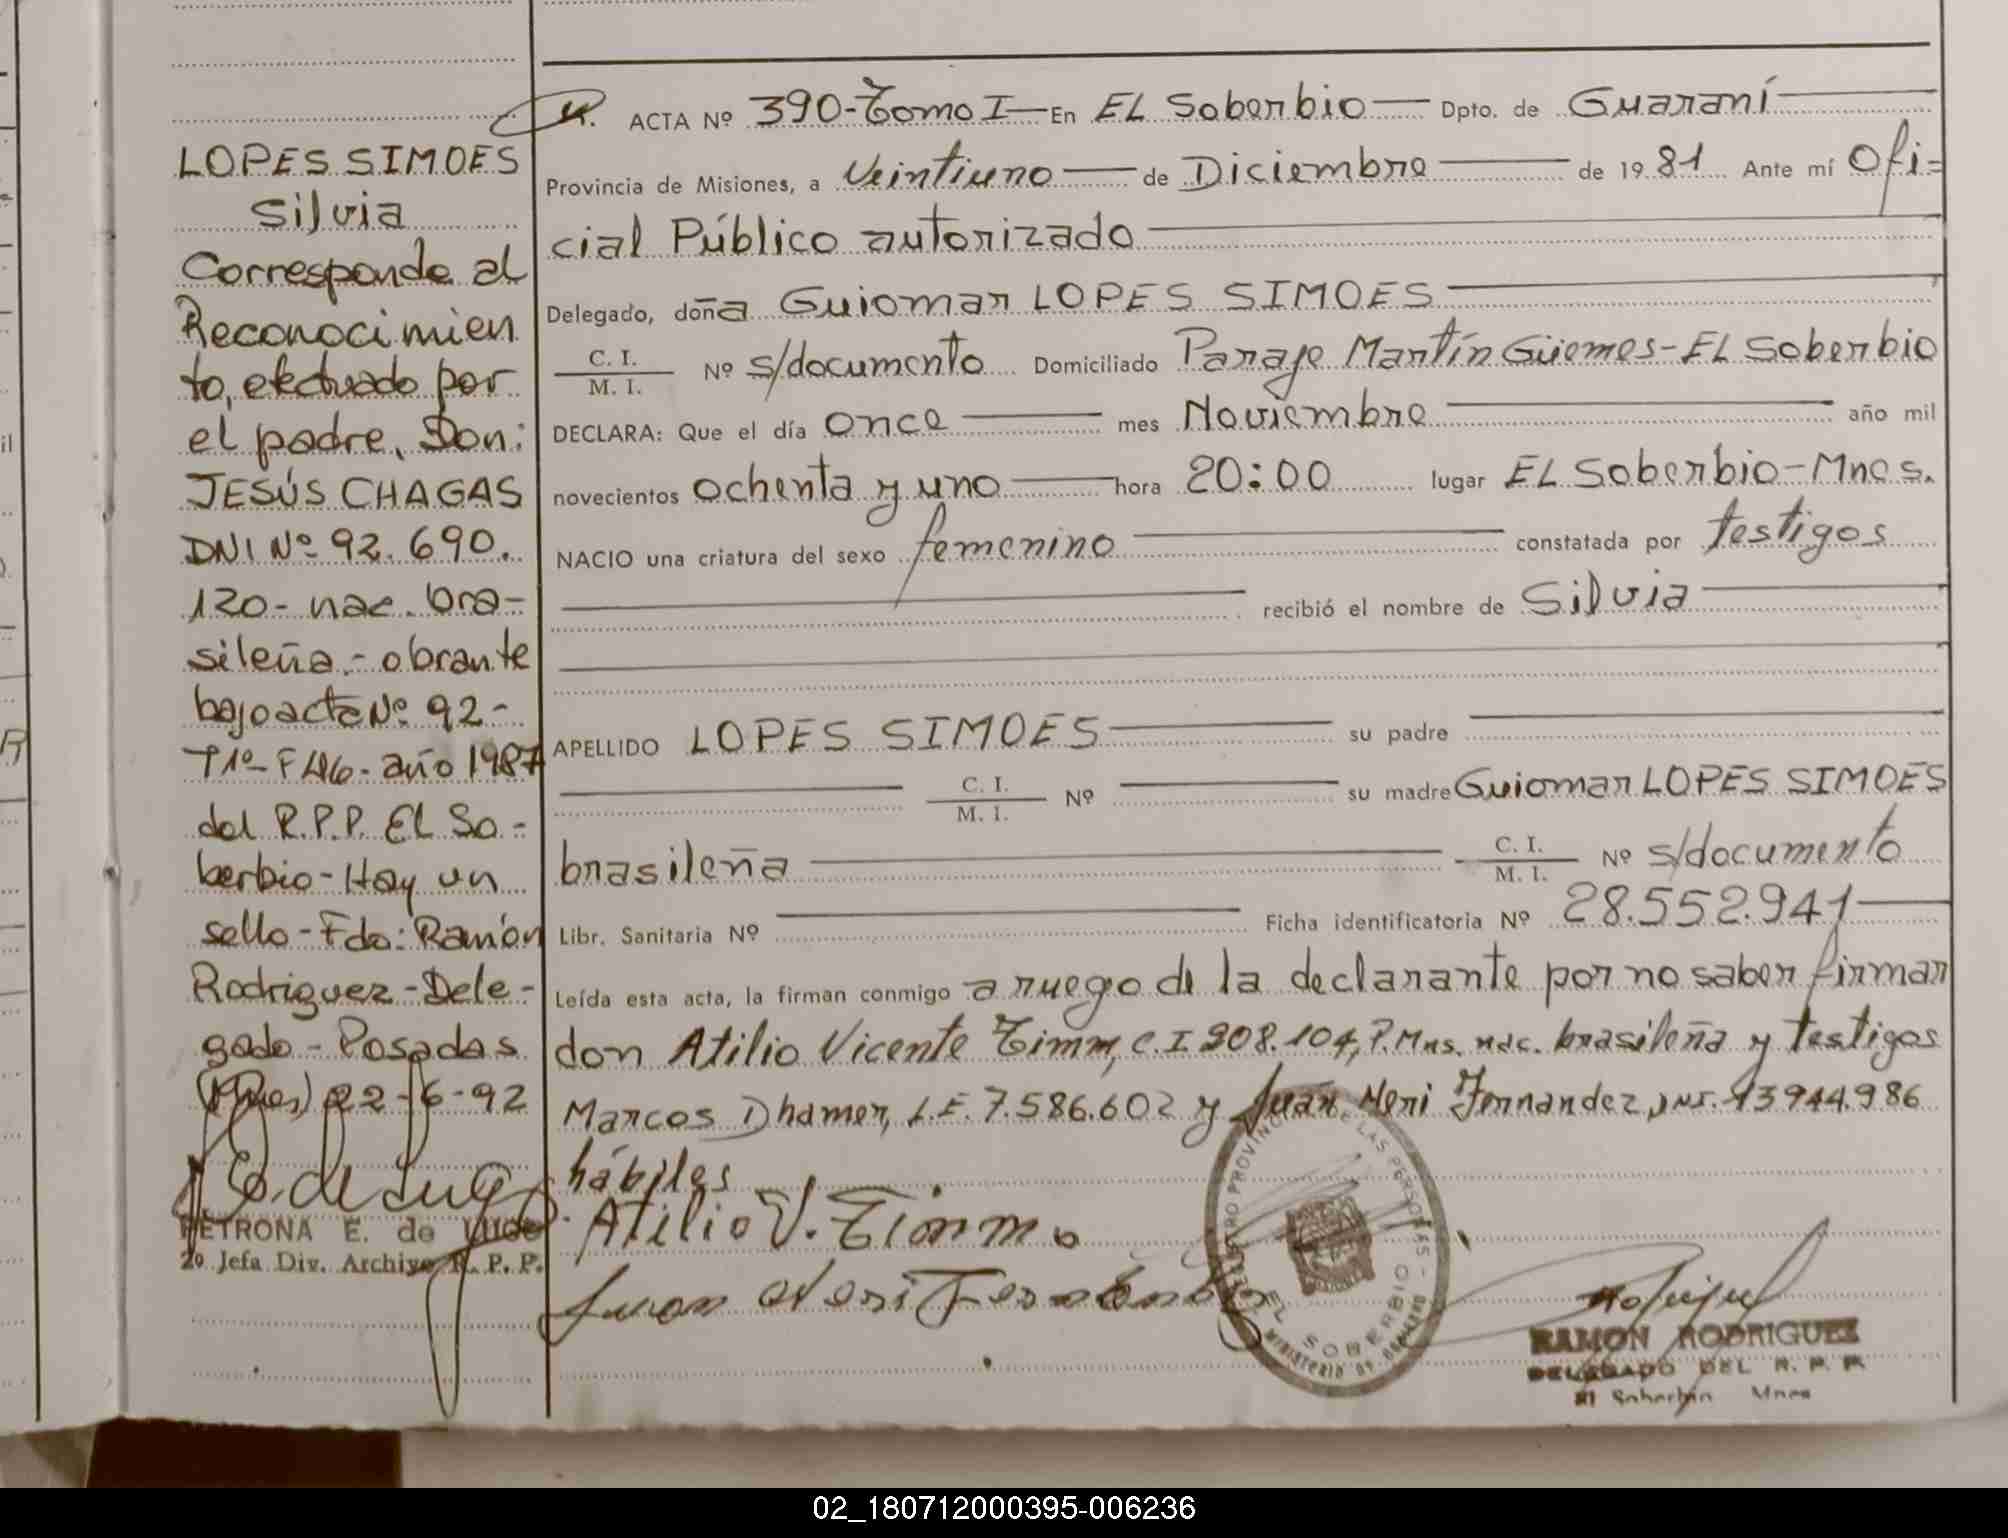 LOPES SIMOES
Silvia
Corresponde al
Reconocimien
to, efectuado por
el padre, Don:
JESÚS CHAGAS
DNI Nº 92.690.
120- nac. bra-
sileña.- obrante
bajo acta Nº 92-
T1º- F46- año 1987
del R.P.P. El So-
berbio- Hay un
sello- Fdo: Ramón
Rodriguez- Dele-
gado- Posadas
(Mnes) 22-6-92
PETRONA E. de LUGO
2º Jefa Div. Archivo R. P. P.
ACTA Nº 390-Tomo I- En EL Soberbio Dpto. de Guaraní
Provincia de Misiones, a Veintiuno de Diciembre de 1981 Ante mí Ofi=
cial Público autorizado
Delegado, doña Guiomar LOPES SIMOES
C. I. / M. I. Nº s/documento Domiciliado Paraje Martín Güemes-EL Soberbio
DECLARA: Que el día once mes Noviembre año mil
novecientos ochenta y uno hora 20:00 lugar EL Soberbio-Mnes.
NACIO una criatura del sexo femenino constatada por testigos
recibió el nombre de Silvia
APELLIDO LOPES SIMOES su padre
C. I. / M. I. Nº su madre Guiomar LOPES SIMOES
brasileña C. I. / M. I. Nº s/documento
Libr. Sanitaria Nº Ficha identificatoria Nº 28.552.941
Leída esta acta, la firman conmigo a ruego de la declarante por no saber firmar
don Atilio Vicente Timm, C.I 908.104, P.Mns. nac. brasileña y testigos
Marcos Dhamer, L.E. 7.586.602 y Juan Neri Fernandez, DNI. 13944.986
hábiles
Atilio V. Timm
Juan Neri Fernandez
REGISTRO PROVINCIAL DE LAS PERSONAS
EL SOBERBIO
MINISTERIO DE GOBIERNO
RAMON RODRIGUEZ
DELEGADO DEL R. P. P.
El Soberbio Mnes
02_180712000395-006236